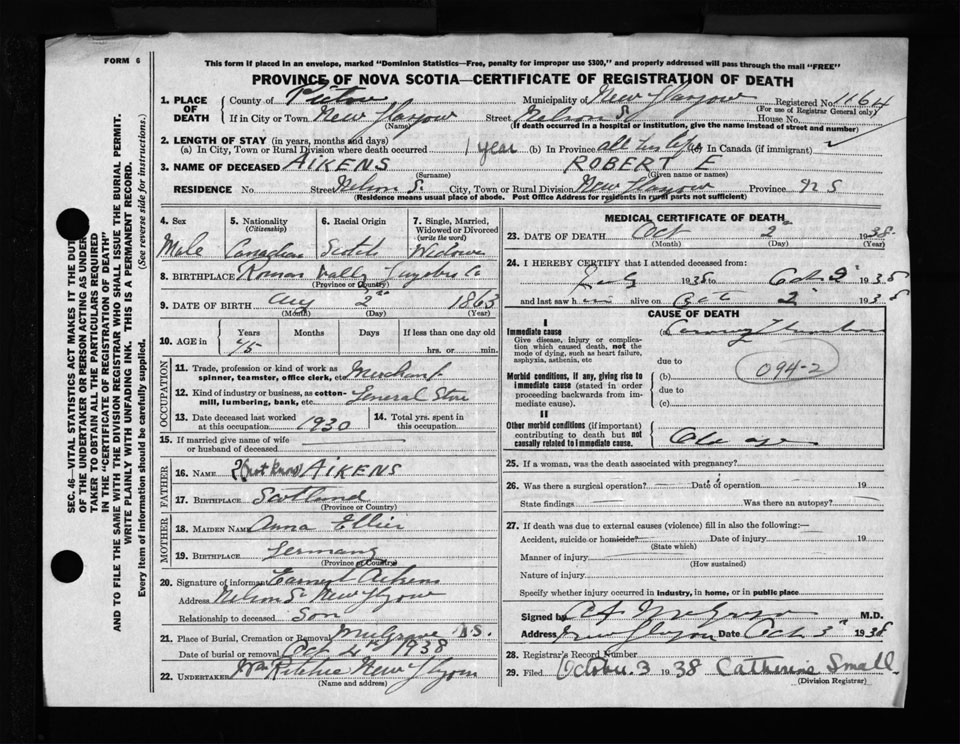 FORM 6
This form if placed in an envelope, marked "Dominion Statistics—Free, penalty for improper use $300," and properly addressed will pass through the mail "FREE"
PROVINCE OF NOVA SCOTIA—CERTIFICATE OF REGISTRATION OF DEATH
1. PLACE OF DEATH
County of Pictou Municipality of New Glasgow Registered No. 1164
(For use of Registrar General only)
If in City or Town New Glasgow Street Nelson St House No.
(Name) (If death occurred in a hospital or institution, give the name instead of street and number)
2. LENGTH OF STAY (in years, months and days)
(a) In City, Town or Rural Division where death occurred 1 year (b) In Province all his life (c) In Canada (if immigrant)
3. NAME OF DECEASED AIKENS ROBERT E
(Surname) (Given name or names)
RESIDENCE No. Street Nelson St. City, Town or Rural Division New Glasgow Province N S
(Residence means usual place of abode. Post Office Address for residents in rural parts not sufficient)
4. Sex
Male
5. Nationality
(Citizenship)
Canadian
6. Racial Origin
Scotch
7. Single, Married, Widowed or Divorced
(write the word)
Widower
8. BIRTHPLACE Roman Vally Guysboro Co
(Province or Country)
9. DATE OF BIRTH Aug 2nd 1863
(Month) (Day) (Year)
10. AGE in Years Months Days If less than one day old
75 hrs. or min.
OCCUPATION
11. Trade, profession or kind of work as spinner, teamster, office clerk, etc. Merchant
12. Kind of industry or business, as cotton-mill, lumbering, bank, etc. General Store
13. Date deceased last worked at this occupation 1930
14. Total yrs. spent in this occupation
15. If married give name of wife or husband of deceased
FATHER
16. NAME ? (not know) AIKENS
17. BIRTHPLACE Scotland
(Province or Country)
MOTHER
18. MAIDEN NAME Anna
19. BIRTHPLACE Germany
(Province or Country)
20. Signature of informant Earnest Aikens
Address Nelson St New Glasgow
Relationship to deceased Son
21. Place of Burial, Cremation or Removal Mulgrave N.S.
Date of burial or removal Oct 4th 1938
22. UNDERTAKER Wm Ritchie New Glasgow
(Name and address)
MEDICAL CERTIFICATE OF DEATH
23. DATE OF DEATH Oct 2nd 1938
(Month) (Day) (Year)
24. I HEREBY CERTIFY that I attended deceased from:
1938 to Oct 2 1938
and last saw him alive on Oct 2 1938
CAUSE OF DEATH
I
Immediate cause
Give disease, injury or complication which caused death, not the mode of dying, such as heart failure, asphyxia, asthenia, etc
(a) Coronary Thrombosis
due to
094-2
Morbid conditions, if any, giving rise to immediate cause (stated in order proceeding backwards from immediate cause).
(b)
due to
(c)
II
Other morbid conditions (if important) contributing to death but not causally related to immediate cause.
Old age
25. If a woman, was the death associated with pregnancy?
26. Was there a surgical operation? Date of operation 19
State findings Was there an autopsy?
27. If death was due to external causes (violence) fill in also the following:—
Accident, suicide or homicide? Date of injury 19
(State which)
Manner of injury
(How sustained)
Nature of injury
Specify whether injury occurred in industry, in home, or in public place
Signed by M.D.
Address New Glasgow Date Oct 3rd 1938
28. Registrar's Record Number
29. Filed October 3 1938 Catherine Small
(Division Registrar)
SEC. 46—VITAL STATISTICS ACT MAKES IT THE DUTY OF THE UNDERTAKER OR PERSON ACTING AS UNDERTAKER TO OBTAIN ALL THE PARTICULARS REQUIRED IN THE "CERTIFICATE OF REGISTRATION OF DEATH"
AND TO FILE THE SAME WITH THE DIVISION REGISTRAR WHO SHALL ISSUE THE BURIAL PERMIT.
WRITE PLAINLY WITH UNFADING INK. THIS IS A PERMANENT RECORD.
Every item of information should be carefully supplied. (See reverse side for instructions.)